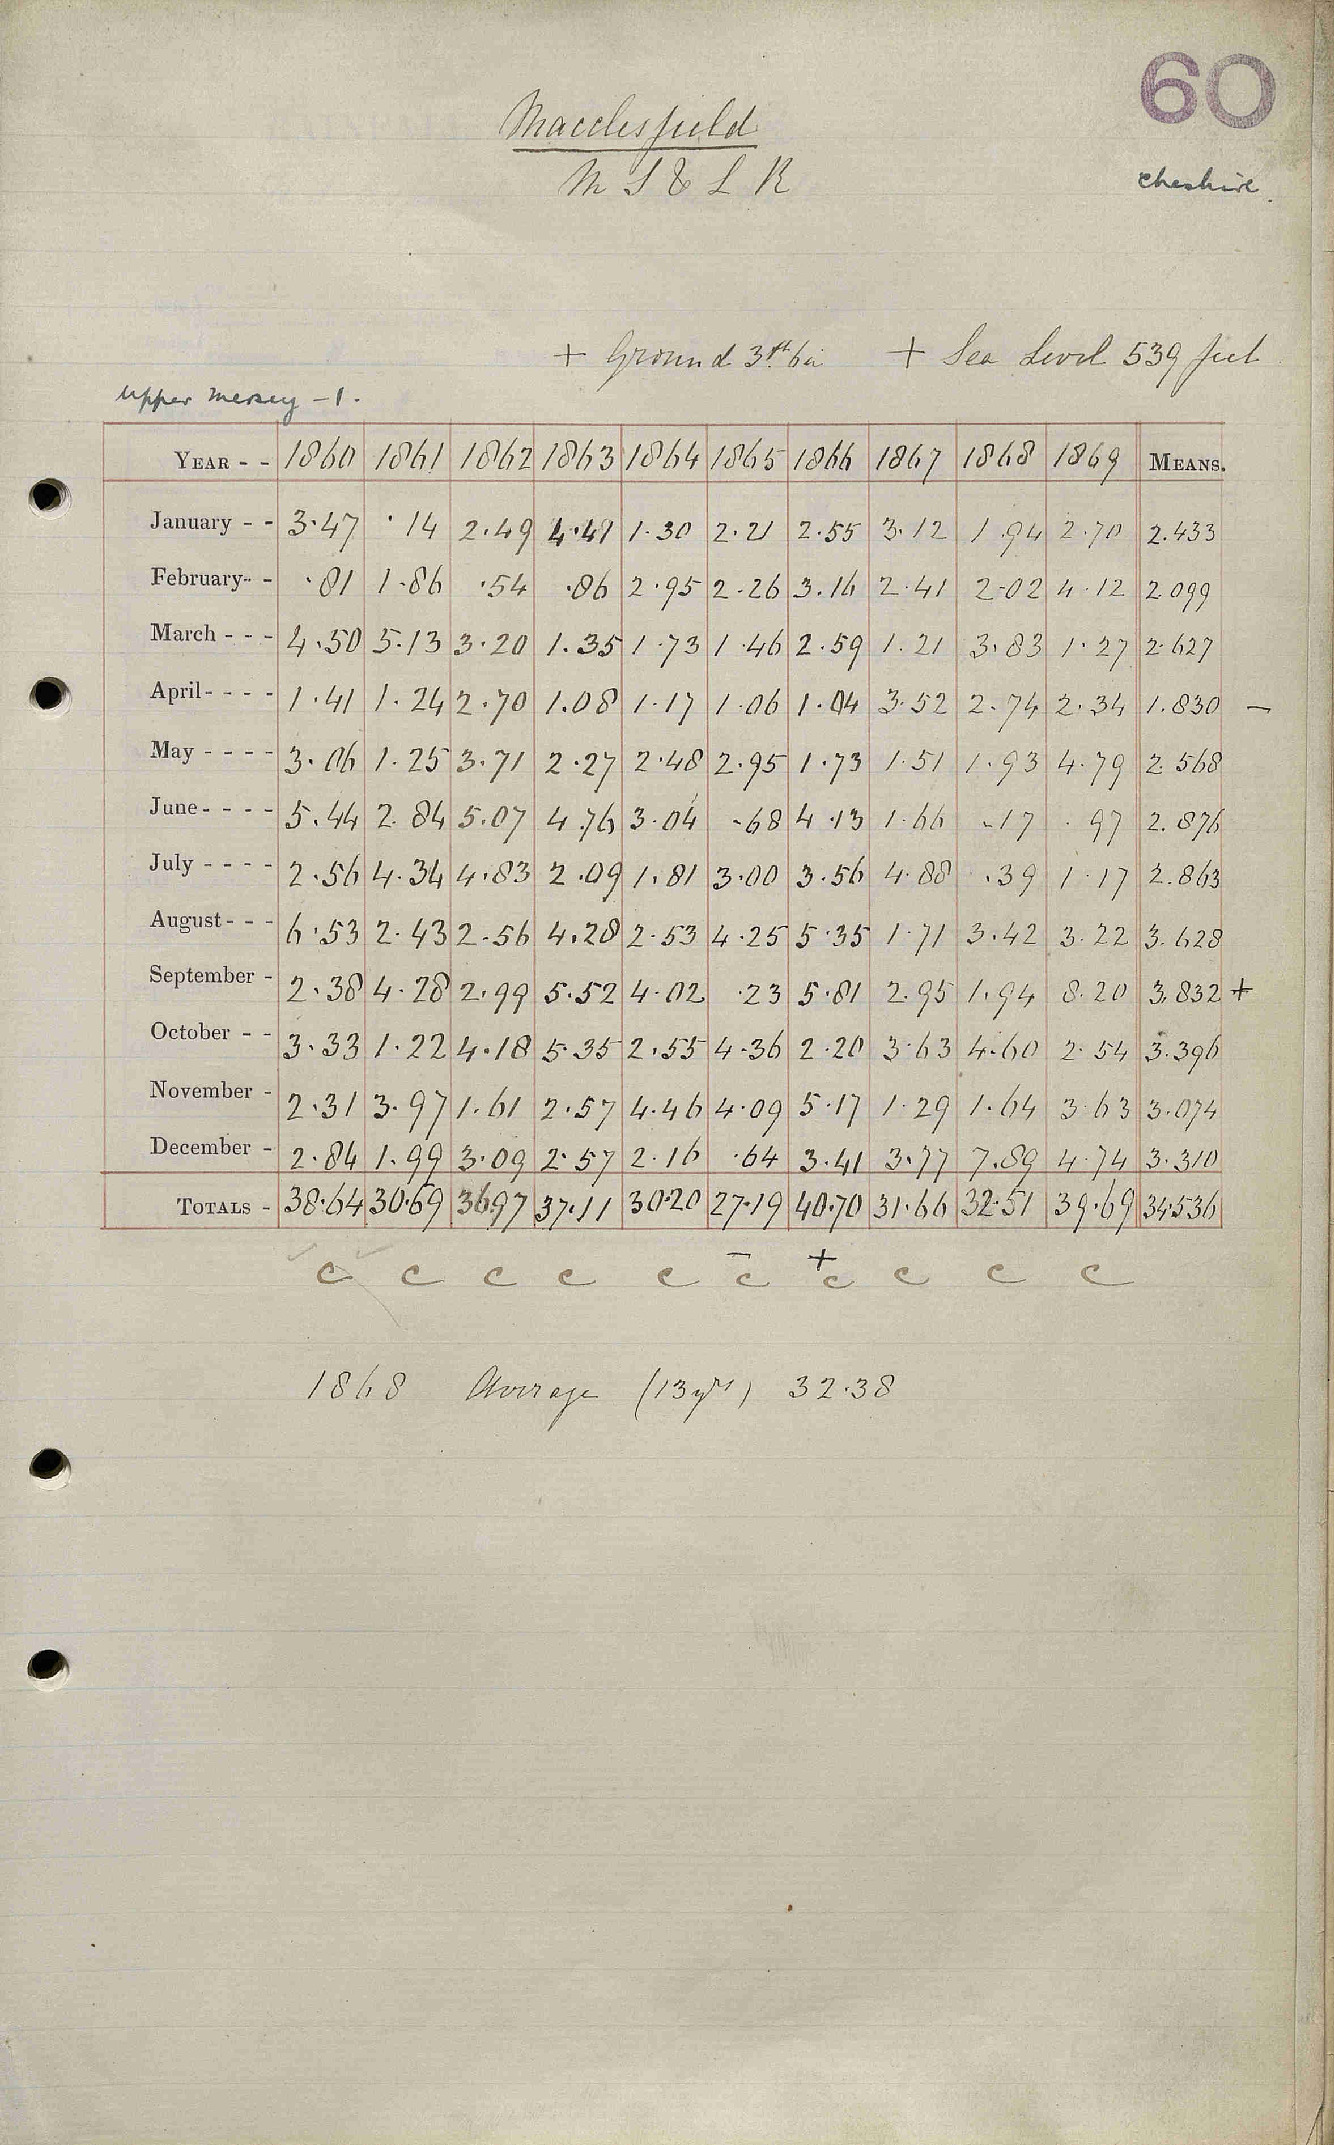 60
Macclesfield
M S & L R
Cheshire.
+ Ground 3ft. 6in + Sea Level 539 feet
Upper Mersey - 1.
YEAR - - 1860 1861 1862 1863 1864 1865 1866 1867 1868 1869 MEANS.
January - - 3.47 .14 2.49 4.41 1.30 2.21 2.55 3.12 1.94 2.70 2.433
February- - .81 1.86 .54 .86 2.95 2.26 3.16 2.41 2.02 4.12 2.099
March - - - 4.50 5.13 3.20 1.35 1.73 1.46 2.59 1.21 3.83 1.27 2.627
April - - - - 1.41 1.24 2.70 1.08 1.17 1.06 1.04 3.52 2.74 2.34 1.830 -
May - - - - 3.06 1.25 3.71 2.27 2.48 2.95 1.73 1.51 1.93 4.79 2.568
June - - - - 5.44 2.84 5.07 4.76 3.04 .68 4.13 1.66 .17 .97 2.876
July - - - - 2.56 4.34 4.83 2.09 1.81 3.00 3.56 4.88 .39 1.17 2.863
August - - - 6.53 2.43 2.56 4.28 2.53 4.25 5.35 1.71 3.42 3.22 3.628
September - 2.38 4.28 2.99 5.52 4.02 .23 5.81 2.95 1.94 8.20 3.832 +
October - - 3.33 1.22 4.18 5.35 2.55 4.36 2.20 3.63 4.60 2.54 3.396
November - 2.31 3.97 1.61 2.57 4.46 4.09 5.17 1.29 1.64 3.63 3.074
December - 2.84 1.99 3.09 2.57 2.16 .64 3.41 3.77 7.89 4.74 3.310
TOTALS - 38.64 30.69 36.97 37.11 30.20 27.19 40.70 31.66 32.51 39.69 34.536
- +
c c c c c c c c c c
1868 Average (13 yrs) 32.38